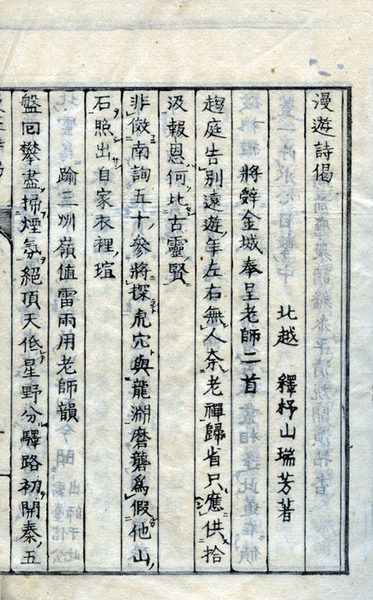 漫遊詩偈
北越　釋杼山瑞芳著
將辤金城奉呈老師二首
趨庭告別遠遊年左右無人奈老禪歸省只應供拾
汲報恩何比古靈賢
非傚南詢五十參將探虎穴與龍淵磨礱爲假他山
石照出自家衣裡瑄
踰三州嶺値雷雨用老師韻
盤回攀盡掃煙氛絕頂天低星野分驛路初開秦五